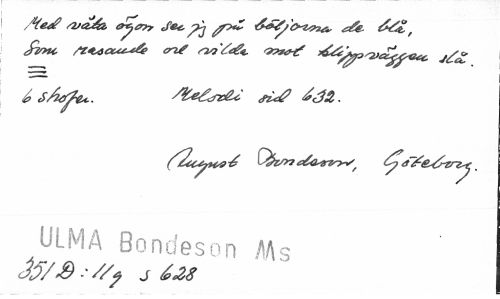 Med våta ögon ser jg på böljorna de blå,
Som rasande ock vilda mot klippväggen slå.
6 strofer. Melodi sid 632.
August Bondeson, Göteborg.
ULMA Bondeson Ms
351 D:11q s 628